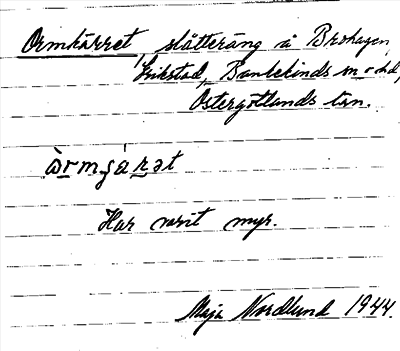 Ormkärret, slåtteräng å Brohagen,
Grikstad, Bankekinds sn o hd,
Östergötlands län.
Har varit myr.
Maja Nordlund 1944.